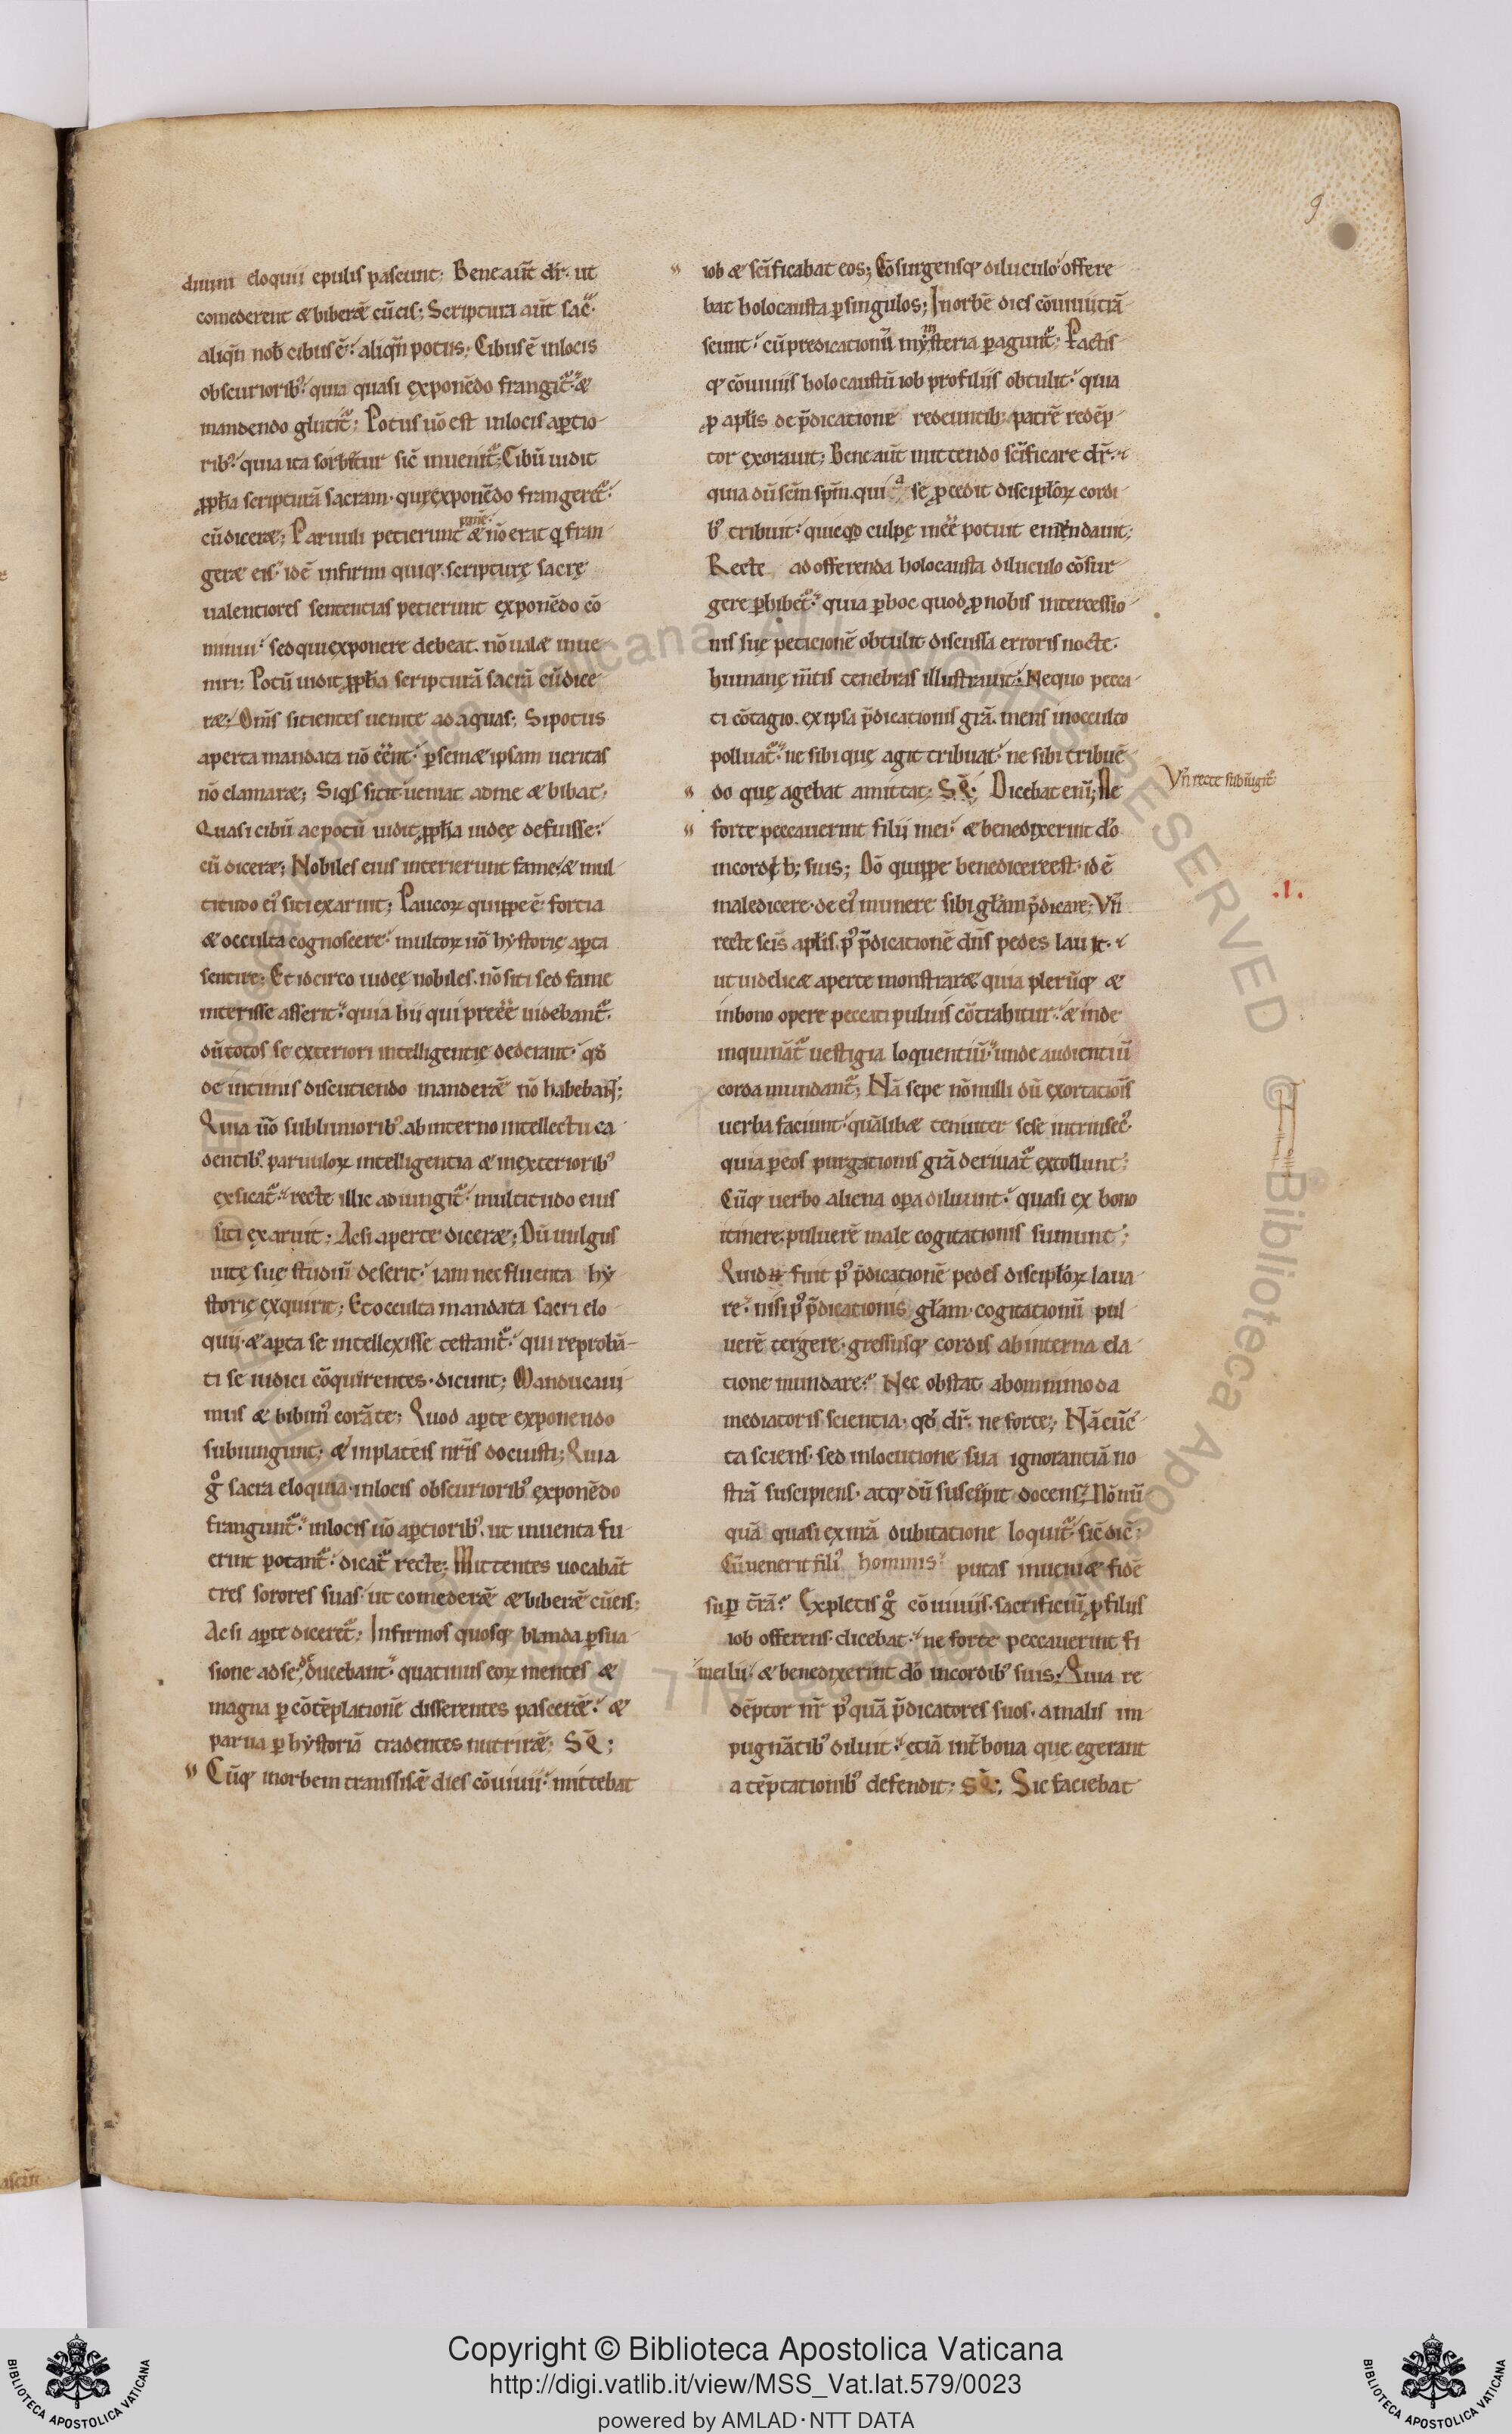 9
diuini eloquii epulis pascunt; Bene aut̄ dr̄. ut
comederent & biberēt cū eis; Scriptura aut̄ sac̄
aliqn̄ nob̄ cibus ē. aliqn̄ potus; Cibus ē in locis
obscuriorib; quia quasi exponēdo frangit᷑. &
mandendo glutit᷑; Potus ũo est in locis aꝑtio
rib; quia ita sorbetur sic̄ inuenit᷑; Cibū uidit
ꝓph̄a scripturā sacram. quę exponēdo frangeret᷑.
cū dicer&; Paruuli petierunt panē & nō erat q̇ fran
ger& eis. id ē infirmi quiq; scripturę sacrę
ualentiores sententias petierunt exponēdo cō
minui. sed qui exponere debeat. nō ual& inue
niri; Potū uidit ꝓph̄a scripturā sacrā cū dice
r&; Om̄s sitientes uenite ad aquas; Si potus
aperta mandata nō eēnt. ꝑ sem& ipsam ueritas
nō clamar&; Siq̇s sitit ueniat ad me & bibat;
Quasi cibū ac potū uidit ꝓph̄a iudeę defuisse.
cū dicer&; Nobiles eius interierunt fame. & mul
titudo ei᷒ siti exaruit; Paucoꝝ quippe ē fortia
& occulta cognoscere. multoꝝ ũo hystorię aꝑta
sentire; Et idcirco iudeę nobiles. nō siti sed fame
interisse asserit. quia hii qui preeē uidebant᷑.
dū totos se exteriori intelligentię dederant. qd̄
de intimis discutiendo manderēt nō habebant;
Quia ũo sublimiorib; ab interno intellectu ca
dentib; paruuloꝝ intelligentia & in exteriorib;
exsicat᷑. recte illic adiungit᷑. multitudo eius
siti exaruit; Ac si aperte dicer&; Dū uulgus
uitę suę studiū deserit. iam nec fluenta hy
storię exquirit; Et occulta mandata sacri elo
quii. & aꝑta se intellexisse testant᷑. qui reproba
ti se iudici cōquirentes. dicunt; Manducaui
mus & bibim᷒ corā te; Quod aꝑte exponendo
subiungunt; & in plateis nr̄is docuisti; Quia
gͦ sacra eloquia in locis obscuriorib; exponēdo
frangunt᷑. in locis ũo aꝑtiorib; ut inuenta fu
erint potant᷑. dicat᷑ recte; Mittentes uocabāt
tres sorores suas. ut comederēt & biberēt cū eis;
Ac si aꝑte diceret᷑; Infirmos quosq; blanda ꝑsua
sione ad se ducebant. quatinus eoꝝ mentes &
magna ꝑ cōtēplationē disserentes pascerēt. &
parua ꝑ hystoriā tradentes nutrirēt; SQ̄;
Cūq; in orbem transissēt dies cōuiuii. mittebat
iob & sc̄ificabat eos; Cōsurgensq; diluculo offere
bat holocausta ꝑ singulos; In orbē dies cōuiuii trā
seunt. cū predicationū mysteria ꝑagunt᷑; Pactis
q; cōuiuiis holocaustū iob pro filiis obtulit. quia
ꝓ apl̄is de p̄dicatione redeuntib; patrē redēp
tor exorauit; Bene aut̄ mittendo sc̄ificare dr̄.
quia dū sc̄m sp̄m. qui a se ꝓcedit discipl̄oꝝ cordi
b; tribuit. quicqd culpę ineē potuit emendauit;
Recte ad offerenda holocausta diluculo cōsur
gere ꝑhibet᷑. quia ꝑ hoc quod ꝓ nobis intercessio
nis suę peticionē obtulit discussa erroris nocte.
humanę m̄tis tenebras illustrauit; Ne quo pecca
ti cōtagio. ex ipsa p̄dicationis gr̄a. mens in occulto
polluat᷑. ne sibi quę agit tribuat. ne sibi tribuē
do quę agebat amittat; SQ̄; Dicebat eni; Ne
forte peccauerint filii mei. & benedixerint dō
in cordib; suis; Dō quippe benedicere est. id ē
maledicere. de ei᷒ munere sibi gl̄am p̄dicare; Vn̄
recte sc̄is apl̄is. p᷒ p̄dicationē dn̄s pedes lauit.
ut uidelic& aperte monstrar& quia plerūq; &
in bono opere peccati puluis cōtrahitur. & inde
inquināt᷑ uestigia loquentiū. unde audientiū
corda mundant᷑; Nā sepe nōnulli dū exortation̄is
uerba faciunt. quālib& tenuiter sese intrinsec᷒
quia ꝑ eos purgationis gr̄a deriuat᷑ extollunt;
Cūq; uerbo aliena oꝑa diluunt. quasi ex bono
itinere. puluerē male cogitationis sumunt;
Quid fuit p᷒ p̄dicationē pedes discipl̄oꝝ laua
re. nisi p᷒ p̄dicationis gl̄am. cogitationū pul
uerē tergere. gressusq; cordis ab interna ela
tione mundare. Nec obstat ab omnimoda
mediatoris scientia. qd̄ dr̄. ne forte; Nā cūc
ta sciens. sed in locutione sua ignorantiā no
strā suscipiens. atq; dū suscipit docens. Nōnū
quā quasi ex nr̄a dubitatione loquit᷑. sic̄ dic̄;
Cū uenerit fili᷒ hominis. putas inueni& fidē
suꝑ t̄rā. Expletis gͦ cōuiuiis. sacrificiū ꝓ filiis
iob offerens. dicebat. ne forte peccauerint fi
lii mei. & benedixerint dō in cordib; suis; Quia re
dēptor nr̄ p᷒quā p̄dicatores suos. a malis im
pugnātib; diluit. etiā int̄ bona que egerant
a tēptationib; defendit; SQ̄; Sic faciebat
Vn̄ recte subiūgit᷑
.I.
Copyright © Biblioteca Apostolica Vaticana
http://digi.vatlib.it/view/MSS_Vat.lat.579/0023
powered by AMLAD·NTT DATA
BIBLIOTECA APOSTOLICA VATICANA
BIBLIOTECA APOSTOLICA VATICANA